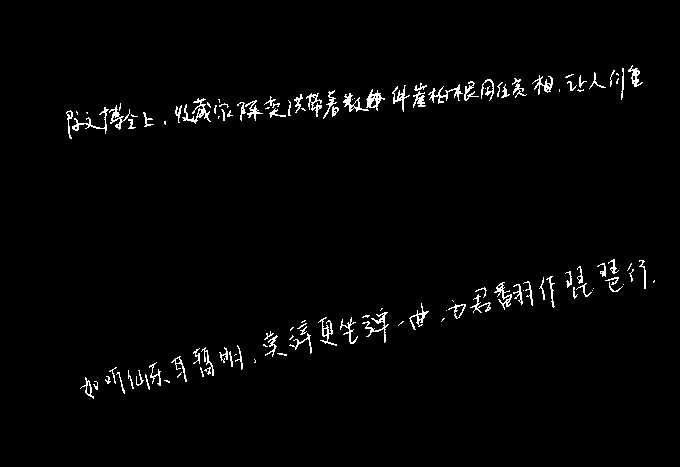 文博会上,收藏家陈奕洪带着数件崖柏根雕亮相,让人们重
如听仙乐耳暂明,莫辞更坐弹一曲,为君翻作琵琶行.